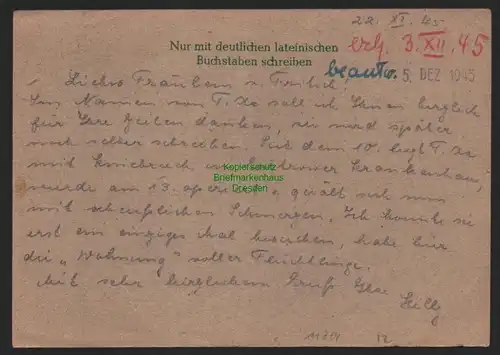 22. XI. 45
Nur mit deutlichen lateinischen
Buchstaben schreiben
erh. 3. XII. 45
beantw. 5. DEZ 1945
Liebes Fräulein v.
Im Namen von T. soll ich Ihnen herzlich
für Ihre Zeilen danken, sie wird später
noch selber schreiben. Seit dem 10. liegt T.
mit im Krankenhaus,
wurde am 13. operiert quält sich nun
mit scheusslichen Schmerzen. Ich konnte sie
erst ein einziges Mal besuchen, habe hier
die „Wohnung" voller Flüchtlinge.
Mit sehr herzlichem Gruß Ihre
Kopierschutz
Briefmarkenhaus
Dresden